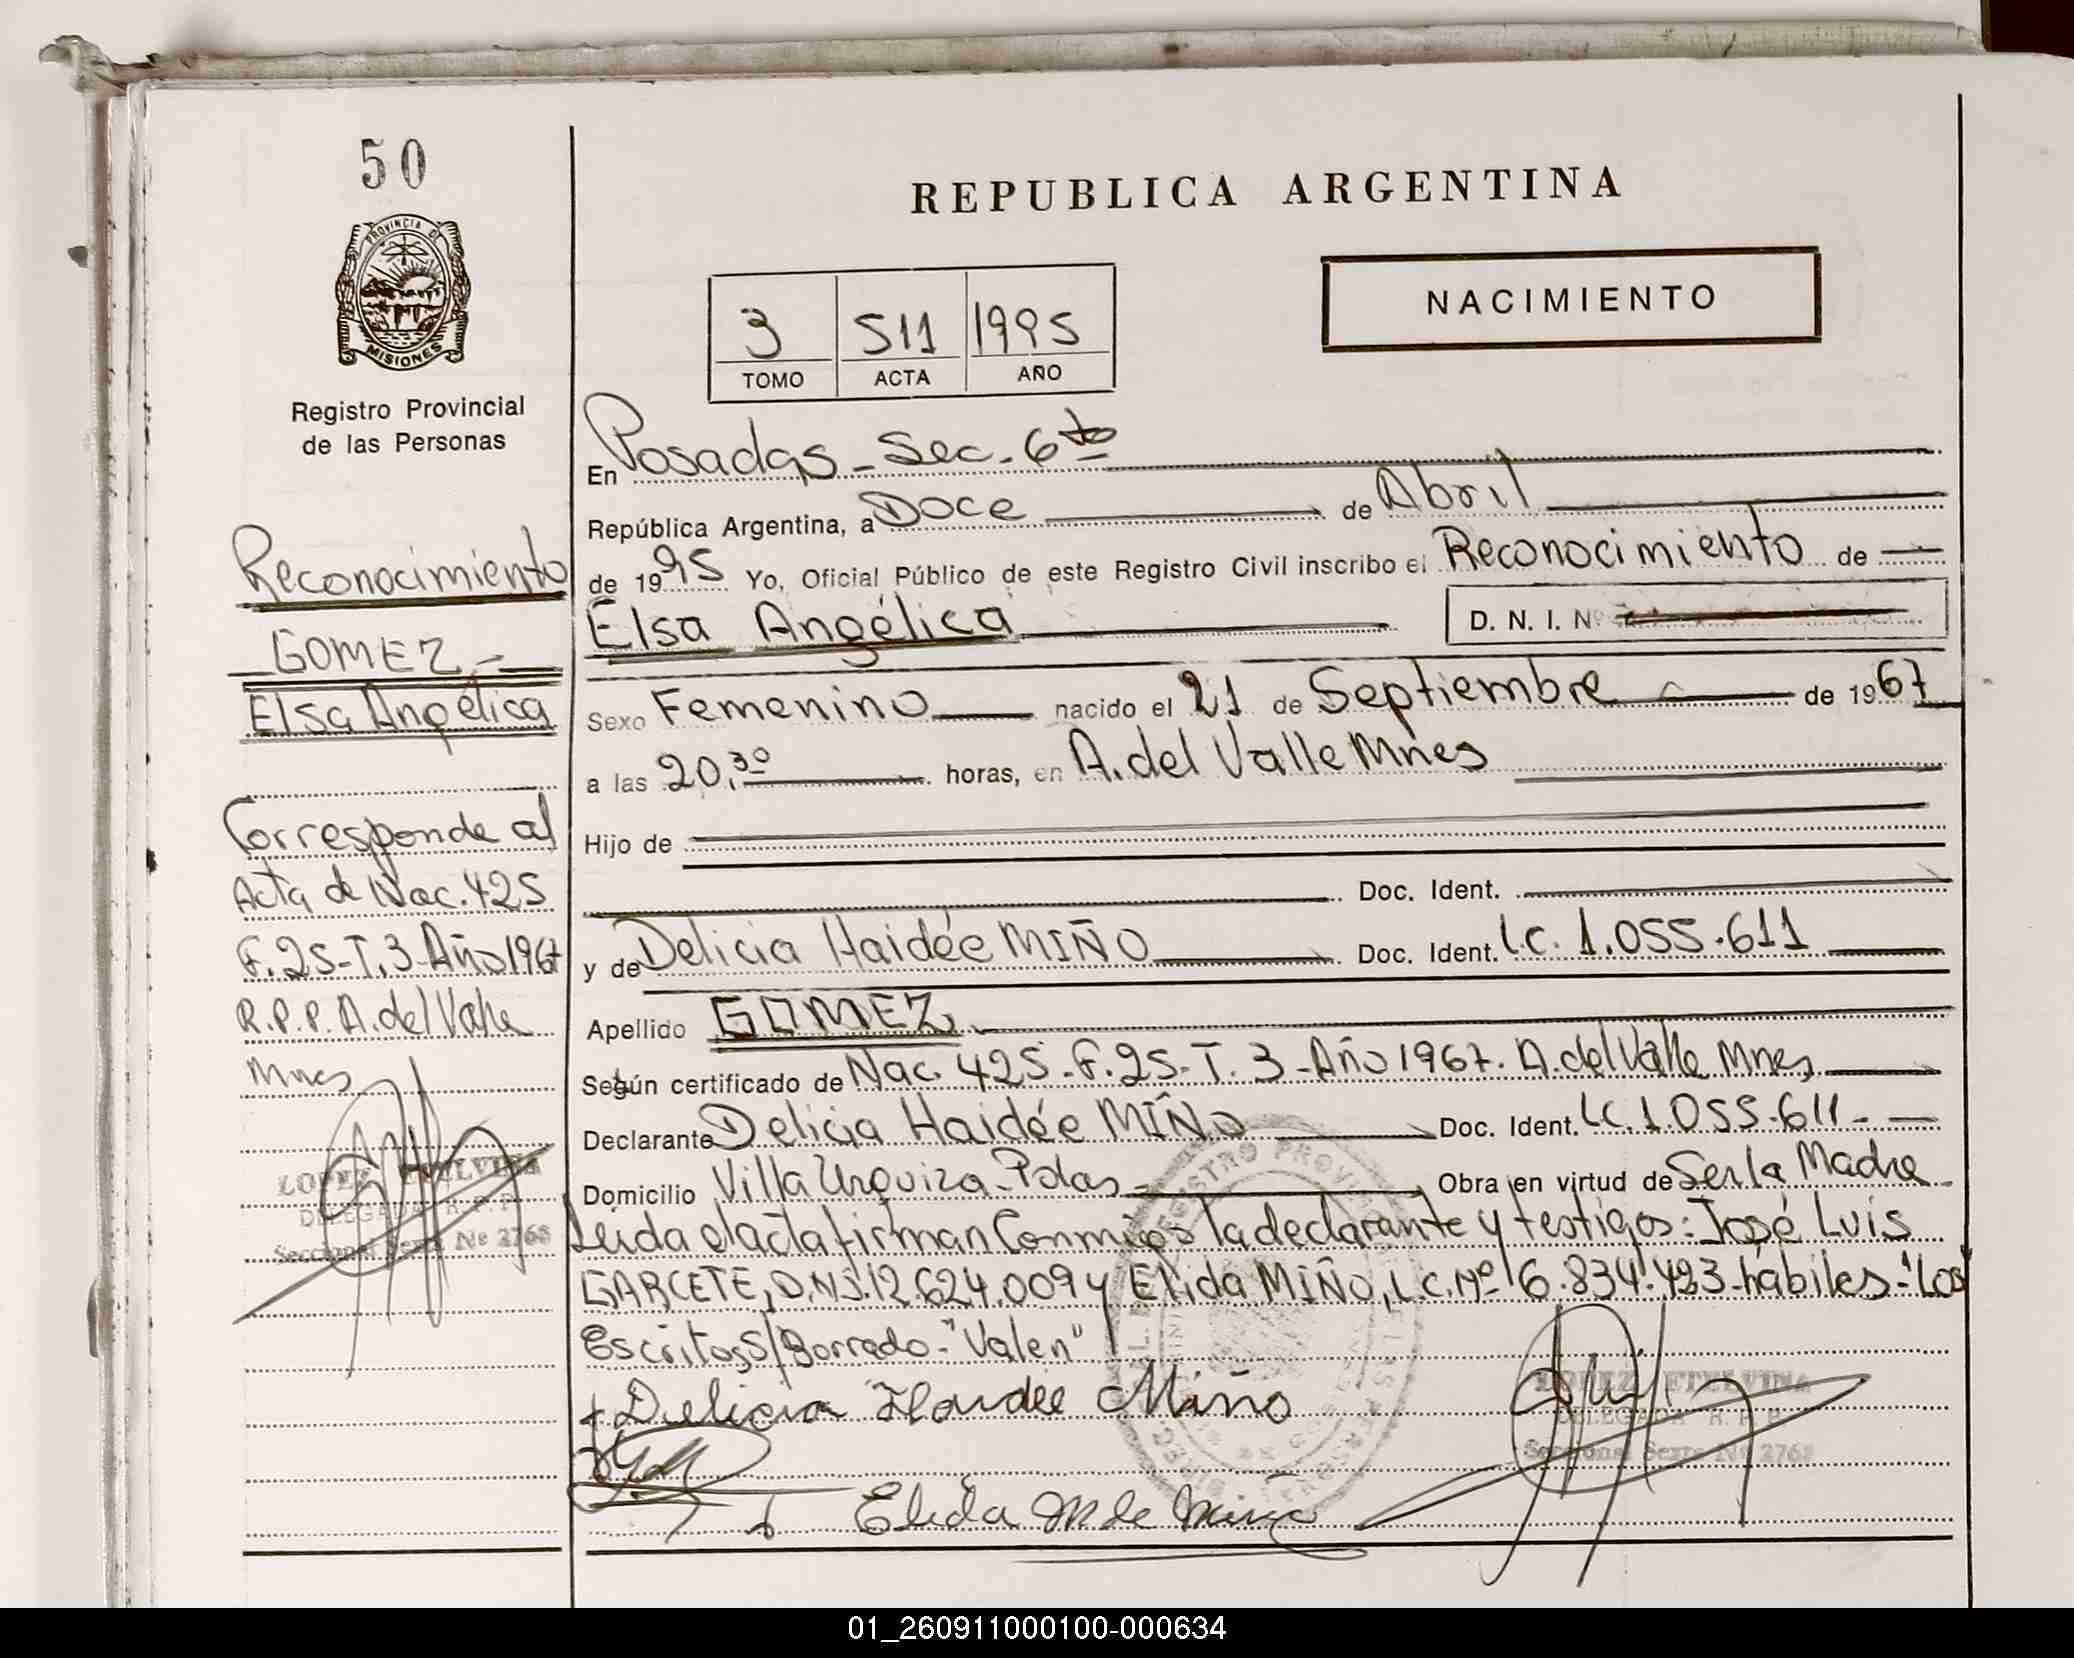 50
PROVINCIA DE
MISIONES
Registro Provincial
de las Personas
REPUBLICA ARGENTINA
NACIMIENTO
3 511 1995
TOMO ACTA AÑO
Reconocimiento
GOMEZ
Elsa Angélica
Corresponde al
Acta de Nac. 425
F. 25-T. 3-Año 1967
R.P.P. A. del Valle
Mnes
LOPEZ ETELVINA
DELEGADA R. P. P.
Seccional Sexta Nº 2768
En Posadas - Sec. 6to
República Argentina, a Doce de Abril
de 1995 Yo, Oficial Público de este Registro Civil inscribo el Reconocimiento de
Elsa Angélica D. N. I. Nº
Sexo Femenino nacido el 21 de Septiembre de 1967
a las 20,30 horas, en A. del Valle Mnes
Hijo de
Doc. Ident.
y de Delicia Haidée MIÑO Doc. Ident. L.C. 1.055.611
Apellido GOMEZ
Según certificado de Nac. 425-F. 25-T. 3-Año 1967. A. del Valle Mnes,
Declarante Delicia Haidée MIÑO Doc. Ident. L.C. 1.055.611-
Domicilio Villa Urquiza-Pdas- Obra en virtud de Ser la Madre
Leída el acta firman Conmigo la declarante y testigos: José Luis
GARCETE, D.N.I. 12.624.009 y Elida MIÑO, L.C. Nº 6.834.423-hábiles-"Los
Escritos S/Borrado-"Valen"
Delicia Haidee Miño
Elida M de Miño
LOPEZ ETELVINA
DELEGADA R. P. P.
Seccional Sexta Nº 2768
01_260911000100-000634